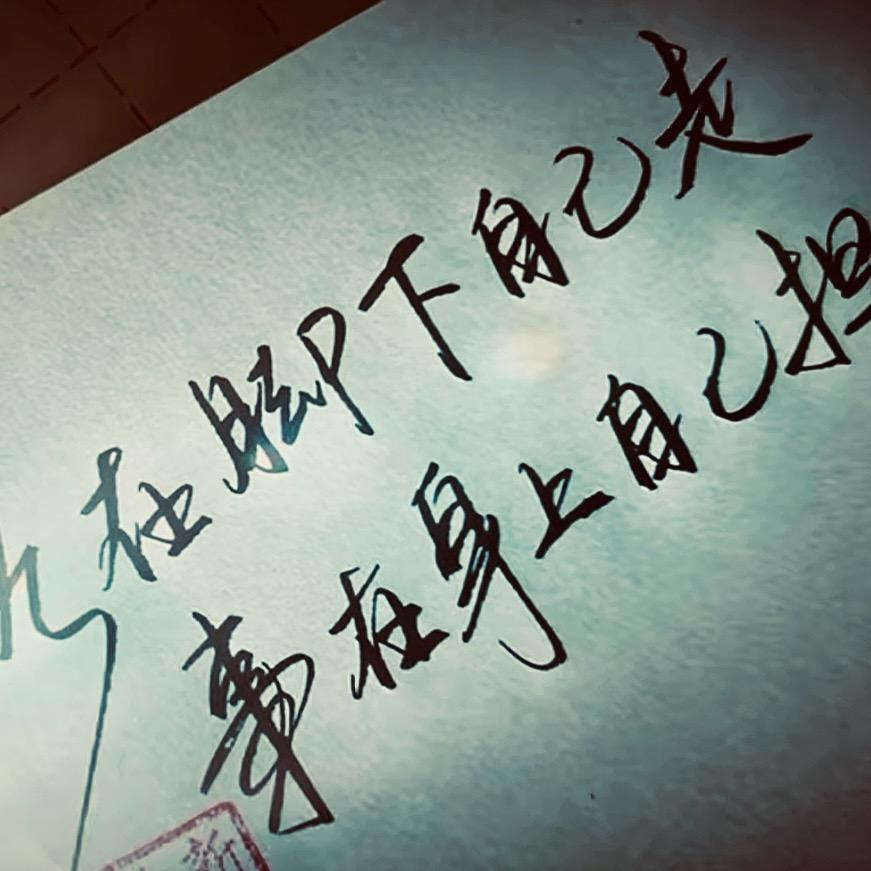 在脚下自己走
事在身上自己担